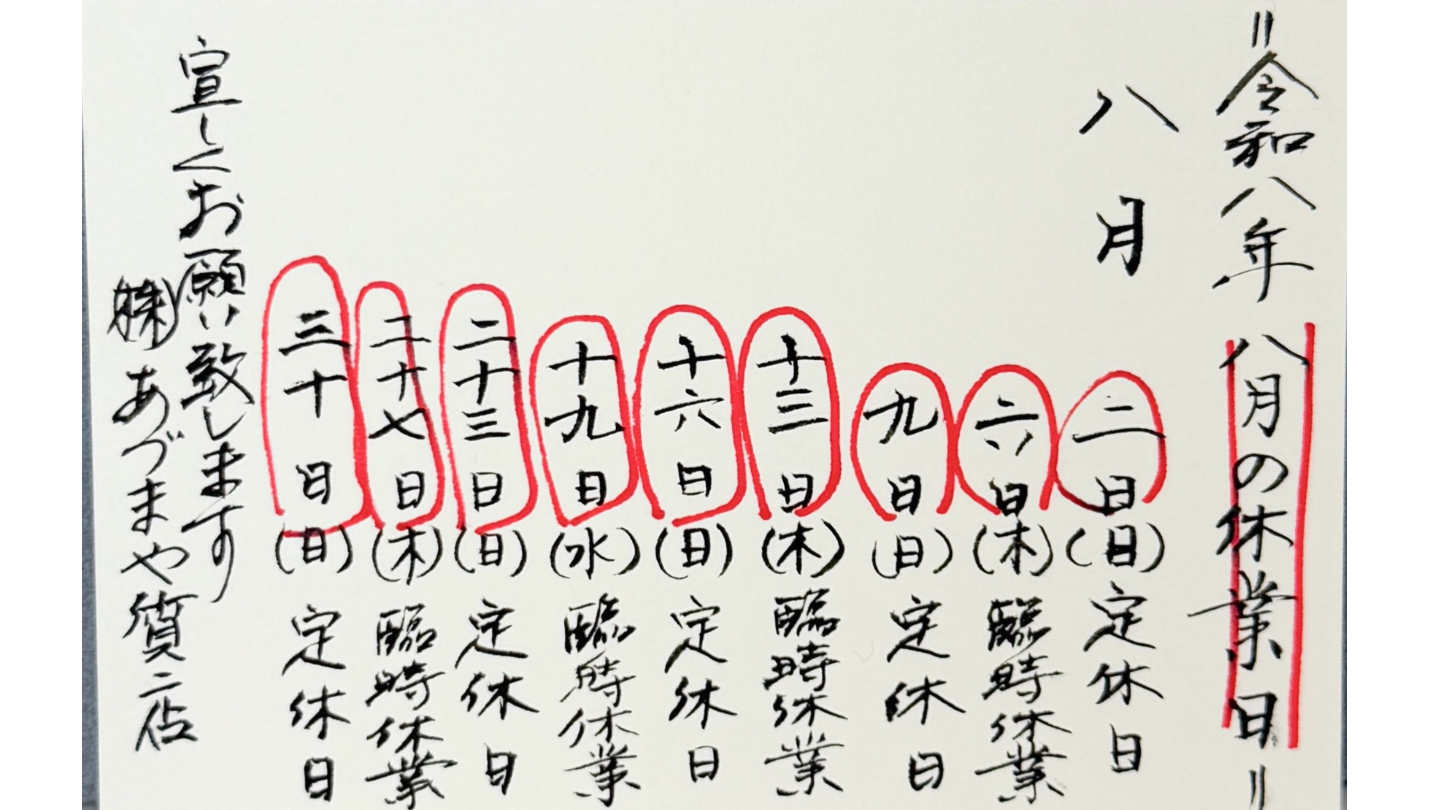 =令和八年 八月の休業日=
八月
二日(日)定休日
六日(木)臨時休業
九日(日)定休日
十三日(木)臨時休業
十六日(日)定休日
十九日(水)臨時休業
二十三日(日)定休日
二十七日(木)臨時休業
三十日(日)定休日
宜しくお願い致します
㈱あづまや質店